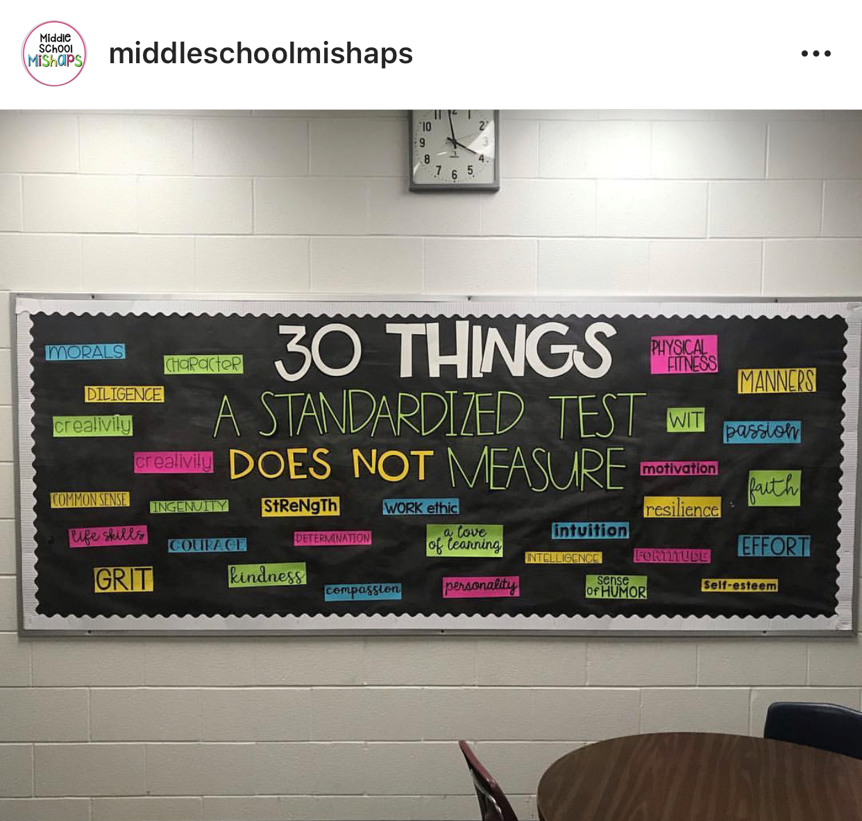 Middle
School
MisHaPs
middleschoolmishaps
11 12 1
10 2
9 3
8 4
7 6 5
30 THINGS
A STANDARDIZED TEST
DOES NOT MEASURE
MORALS
CHaRacteR
DILIGENCE
creativity
creativity
COMMON SENSE
INGENUITY
StReNgTh
WORK ethic
life skills
COURAGE
DETERMINATION
a love
of learning
GRIT
kindness
compassion
personality
PHYSICAL
FITNESS
MANNERS
WIT
passion
motivation
faith
resilience
intuition
INTELLIGENCE
FORTITUDE
EFFORT
sense
OF HUMOR
Self-esteem